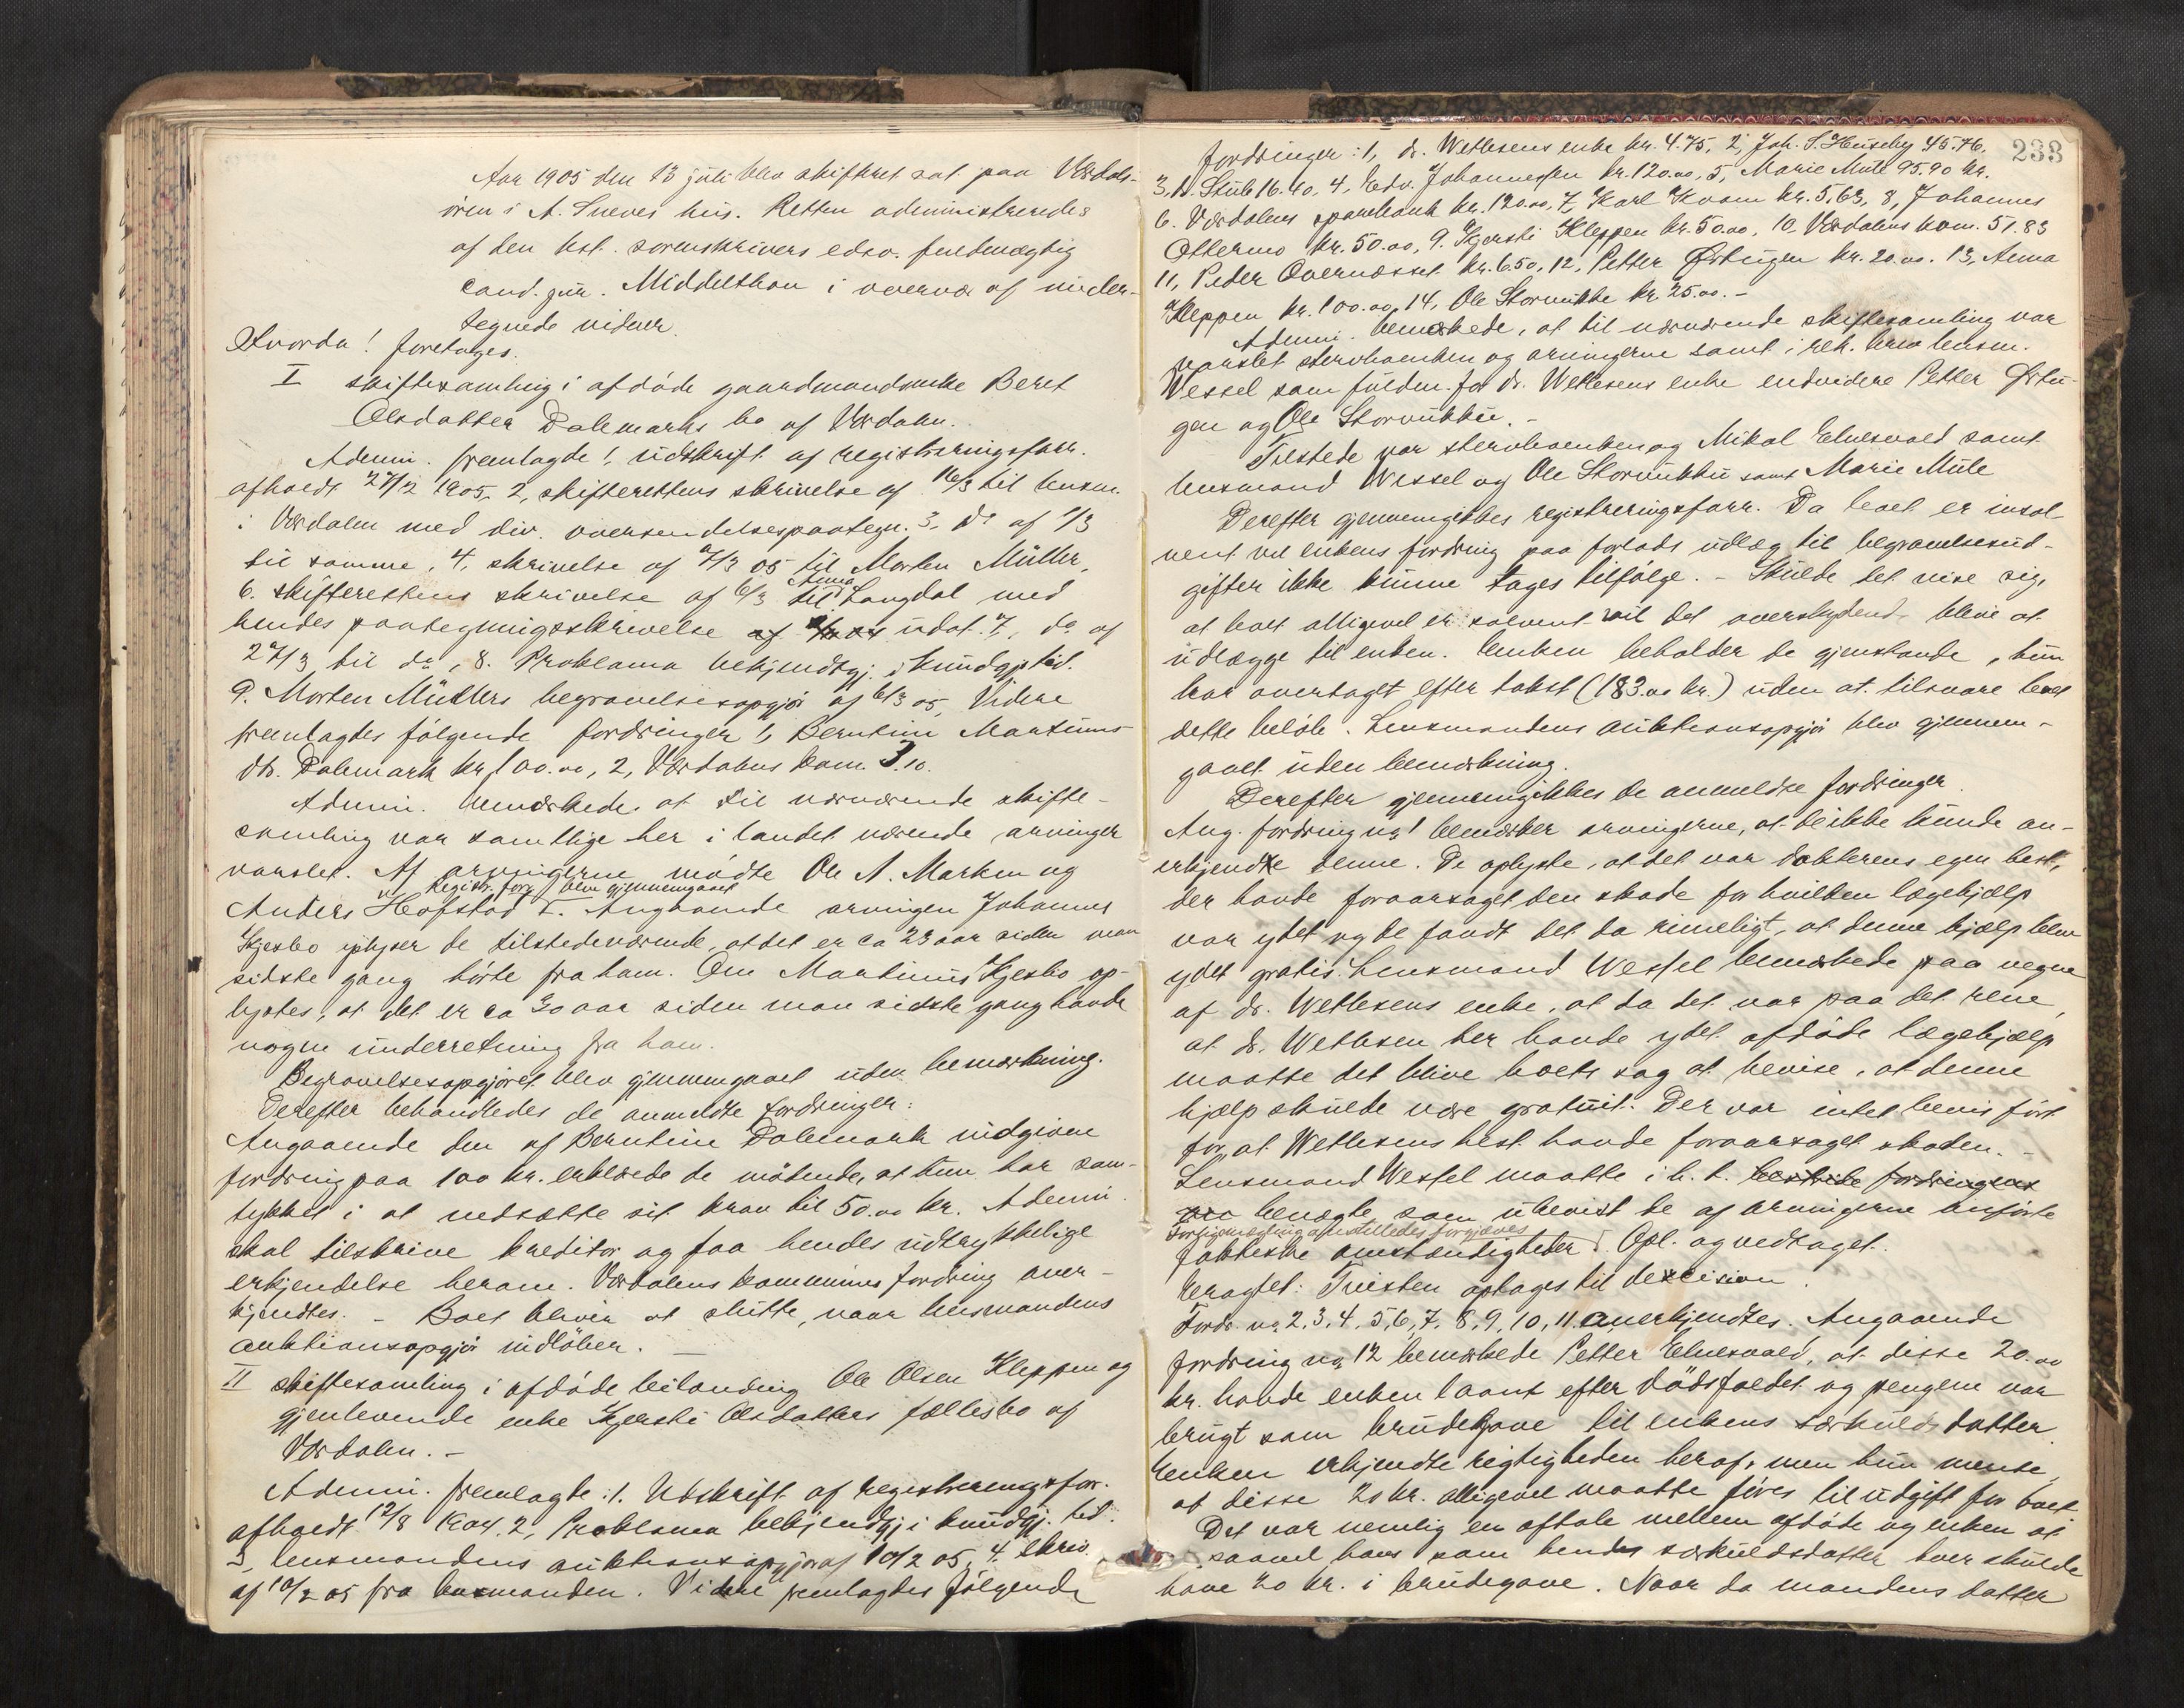 Aar 1905 den 13 juli blev skifteret sat paa Værdals-
ören i A. Sneves hus. Retten administreredes
af den kst. sorenskrivers edsv. fuldmægtig
cand. jur. Middelthon i overvær af under-
tegnede vidner.
Hvorda! foretages.
I skiftesamling i afdöde gaardmandsenke Beret
Olsdatter Dalemarks bo af Værdalen.
Admin. fremlagde 1, udskrift af registreringsforr.
afholdt 27/2 1905, 2, skifterettens skrivelse af 16/3 til lensm.
i Værdalen med div. oversendelsespaategn. 3, do af 1/3
til samme, 4, skrivelse af 2/3 05 til Morten Müller,
6. skifterettens skrivelse af 6/3 til Anna Langdal med
hendes paategningsskrivelse af udat. 7, do af
27/3 til do, 8. Proklama bekjendtgj. i kundgj. tid.
9. Morten Müllers begravelsesopgjör af 6/3 05, Videre
fremlagdes fölgende fordringer 1, Berntine Martinus
dtr. Dalemark kr. 100.00, 2, Værdalens kom. 3.10.
Admin. bemærkede, at til nærværende skifte-
samling var samtlige her i landet værende arvinger
varslet. Af arvingerne mödte Ole A. Marken og
Registr. forr. blev gjennemgaaet
Anders Hofstad. Angaaende arvingen Johannes
Kjesbo oplyser de tilstedeværende, at det er ca 23 aar siden man
sidste gang hörte fra ham. Om Martinus Kjesbo op-
lystes, at det er ca 30 aar siden man sidste gang havde
nogen underretning fra ham.
Begravelsesopgjöret blev gjennemgaaet uden bemærkning.
Derefter behandledes de anmeldte fordringer:
Angaaende den af Berntine Dalemark indgivne
fordring paa 100 kr. erklærede de mötende, at hun har sam-
tykket i at nedsætte sit krav til 50.00 kr. Admin.
skal tilskrive kreditor og faa hendes udtrykkelige
erkjendelse herom. Værdalens kommunes fordring aner-
kjendtes. - Boet bliver at slutte, naar lensmandens
auktionsopgjör indlöber. -
II skiftesamling i afdöde leilænding Ole Olsen Kleppen og
gjenlevende enke Kjersti Olsdatters fællesbo af
Værdalen. -
Admin. fremlagde: 1. Udskrift af registreringsfor.
afholdt 12/8 1904, 2, Proklama bekjendtgj. i kundgj. tid.
3, lensmandens auktionsopgjör af 10/2 05, 4. skriv.
af 10/2 05 fra lensmanden. Videre fremlagdes fölgende
233
fordringer: 1, dr. Wetlesens enke kr. 4.75, 2, Joh. S. Huseby 45.76,
3, N. Stub 16.40, 4, Edv. Johannesen kr. 120.00, 5, Marie Mule 95.90 kr.
6. Værdalens sparebank kr. 120.00, 7, Karl Kvam kr. 5.63, 8, Johannes
Ottermo kr. 50.00, 9. Kjersti Kleppen kr. 50.00, 10, Værdalens kom. 51.83
11, Peder Overnæsset kr. 6.50, 12, Petter Östugen kr. 20.00. 13, Anna
Kleppen kr. 100.00, 14, Ole Storvukke kr. 25.00. -
Admin. bemærkede, at til nærværende skiftesamling var
varslet stervboenken og arvingerne samt i rek. brev lensm.
Wessel som fuldm. for dr. Wetlesens enke endvidere Petter Östu-
gen og Ole Storvukku. -
Tilstede var stervboenken og Mikal Elnesvold samt
lensmand Wessel og Ole Storvukku samt Marie Mule
Derefter gjennemgikkes registreringsforr. Da boet er insol-
vent vil enkens fordring paa forlods udlæg til begravelsesud-
gifter ikke kunne tages tilfölge. - Skulde det vise sig,
at boet alligevel er solvent vil det overskydende blive at
udlægge til enken. Enken beholder de gjenstande, hun
har overtaget efter takst (183.00 kr.) uden at tilsvare boet
dette belöb. Lensmandens auktionsopgjör blev gjennem-
gaaet uden bemærkning.
Derefter gjennemgikkes de anmeldte fordringer.
Ang. fordring no 1 bemærker arvingerne, at de ikke kunde an-
erkjendte denne. De oplyste, at det var doktorens egen hest,
der havde foraarsaget den skade for hvilken lægehjælp
var ydet og de fandt det da rimeligt, at denne hjælp blev
ydet gratis. Lensmand Wessel bemærkede paa vegne
af dr. Wetlesens enke, at da det var paa det rene,
at dr. Wetlesen her havde ydet afdöde lægehjælp
maatte det blive boets sag at bevise, at denne
hjælp skulde være gratuit. Der var intet bevis fört
for, at Wetlesens hest havde foraarsaget skaden. -
Lensmand Wessel maatte i h. t. bestride fordringens
benægte som ubevist de af arvingerne anförte
Forligsmægling anstilledes forgjæves
faktiske omstændigheder. Opl. og vedtaget.
Eragtet: Tvisten optages til decision.
Fordr. no 2, 3, 4, 5, 6, 7, 8, 9, 10, 11 anerkjendtes. Angaaende
fordring no 12 bemærkede Petter Elnesvold, at disse 20.00
kr. havde enken laant efter dödsfaldet og pengene var
brugt som brudegave til enkens særkulds datter.
Enken erkjendte rigtigheden heraf, men hun mente,
at disse 20 kr. alligevel maatte föres til udgift for boet.
Det var nemlig en aftale mellem afdöde og enken at
saavel hans som hendes særkuldsdatter hver skulde
have 20 kr. i brudegave. Naar da mandens datter